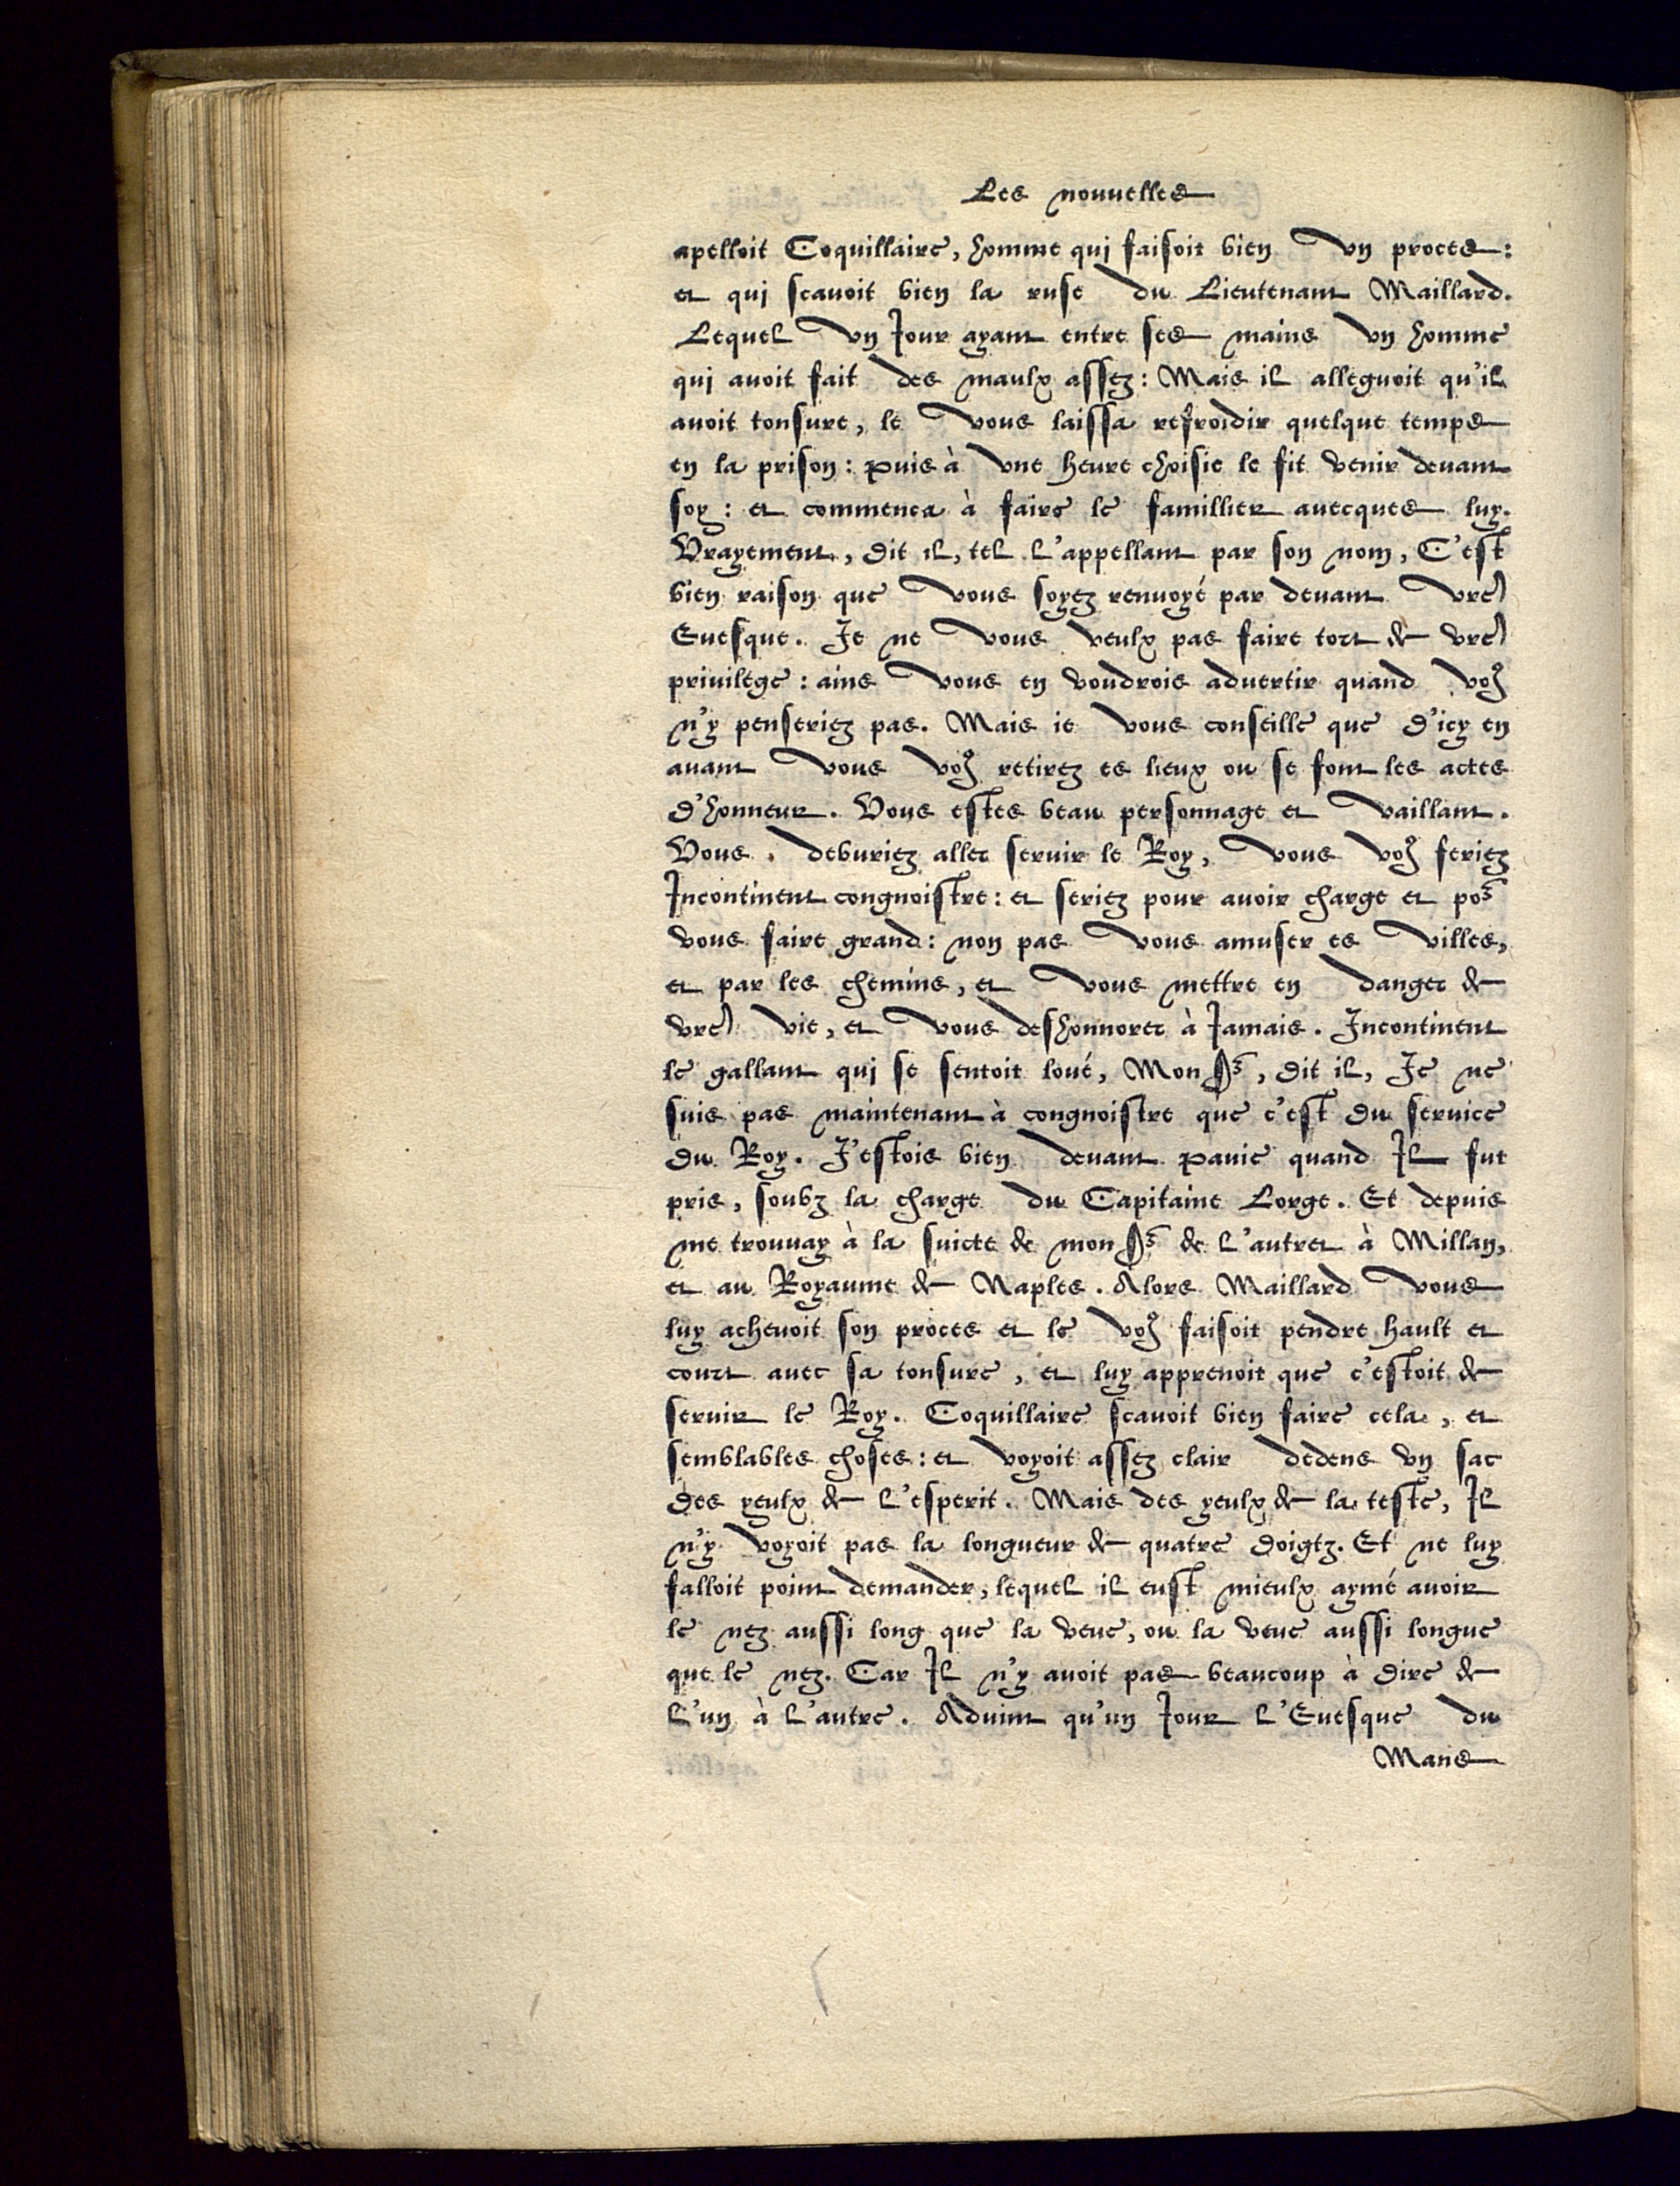 Les nouuelles
apelloit Coquillaire, homme qui faisoit bien vn proces:
et qui scauoit bien la ruse du Lieutenant Maillard.
Lequel vn Iour ayant entre ses mains vn homme
qui auoit fait des maulx assez: Mais il alleguoit qu'il
auoit tonsure, le vous laissa refroidir quelque temps
en la prison: puis à vne heure choisie le fit venir deuant
soy: et commenca à faire le famillier auecques luy.
Vrayement, dit il, tel l'appellant par son nom, C'est
bien raison que vous soyez renuoyé par deuant vre
Euesque. Je ne vous veulx pas faire tort de vre
priuilege: ains vous en voudrois aduertir quand voꝰ
n'y penseriez pas. Mais ie vous conseille que d'icy en
auant vous voꝰ retirez es lieux ou se font les actes
d'honneur. Vous estes beau personnage et vaillant.
Vous debvriez aller seruir le Roy, vous voꝰ feriez
Incontinent congnoistre: et seriez pour auoir charge et poʳ
vous faire grand: non pas vous amuser es villes,
et par les chemins, et vous mettre en danger de
vre vie, et vous deshonnorer à Iamais. Incontinent
le gallant qui se sentoit loué, Mon Sʳ, dit il, Je ne
suis pas maintenant à congnoistre que c'est du seruice
du Roy. J'estois bien deuant pauie quand Il fut
pris, soubz la charge du Capitaine Lorge. Et depuis
me trouuay à la suicte de mon Sʳ de l'autrec à Millan,
et au Royaume de Naples. Alors Maillard vous
luy acheuoit son proces et le voꝰ faisoit pendre hault et
court auec sa tonsure, et luy apprenoit que c'estoit de
seruir le Roy. Coquillaire scauoit bien faire cela, et
semblables choses: et voyoit assez clair dedens vn sac
des yeulx de l'esperit. Mais des yeulx de la teste, Il
n'y voyoit pas la longueur de quatre doigtz. Et ne luy
falloit point demander, lequel il eust mieulx aymé auoir
le nez aussi long que la veue, ou la veue aussi longue
que le nez. Car Il n'y auoit pas beaucoup à dire de
l'un à l'autre. Aduint qu'un Iour l'Euesque du
Mans